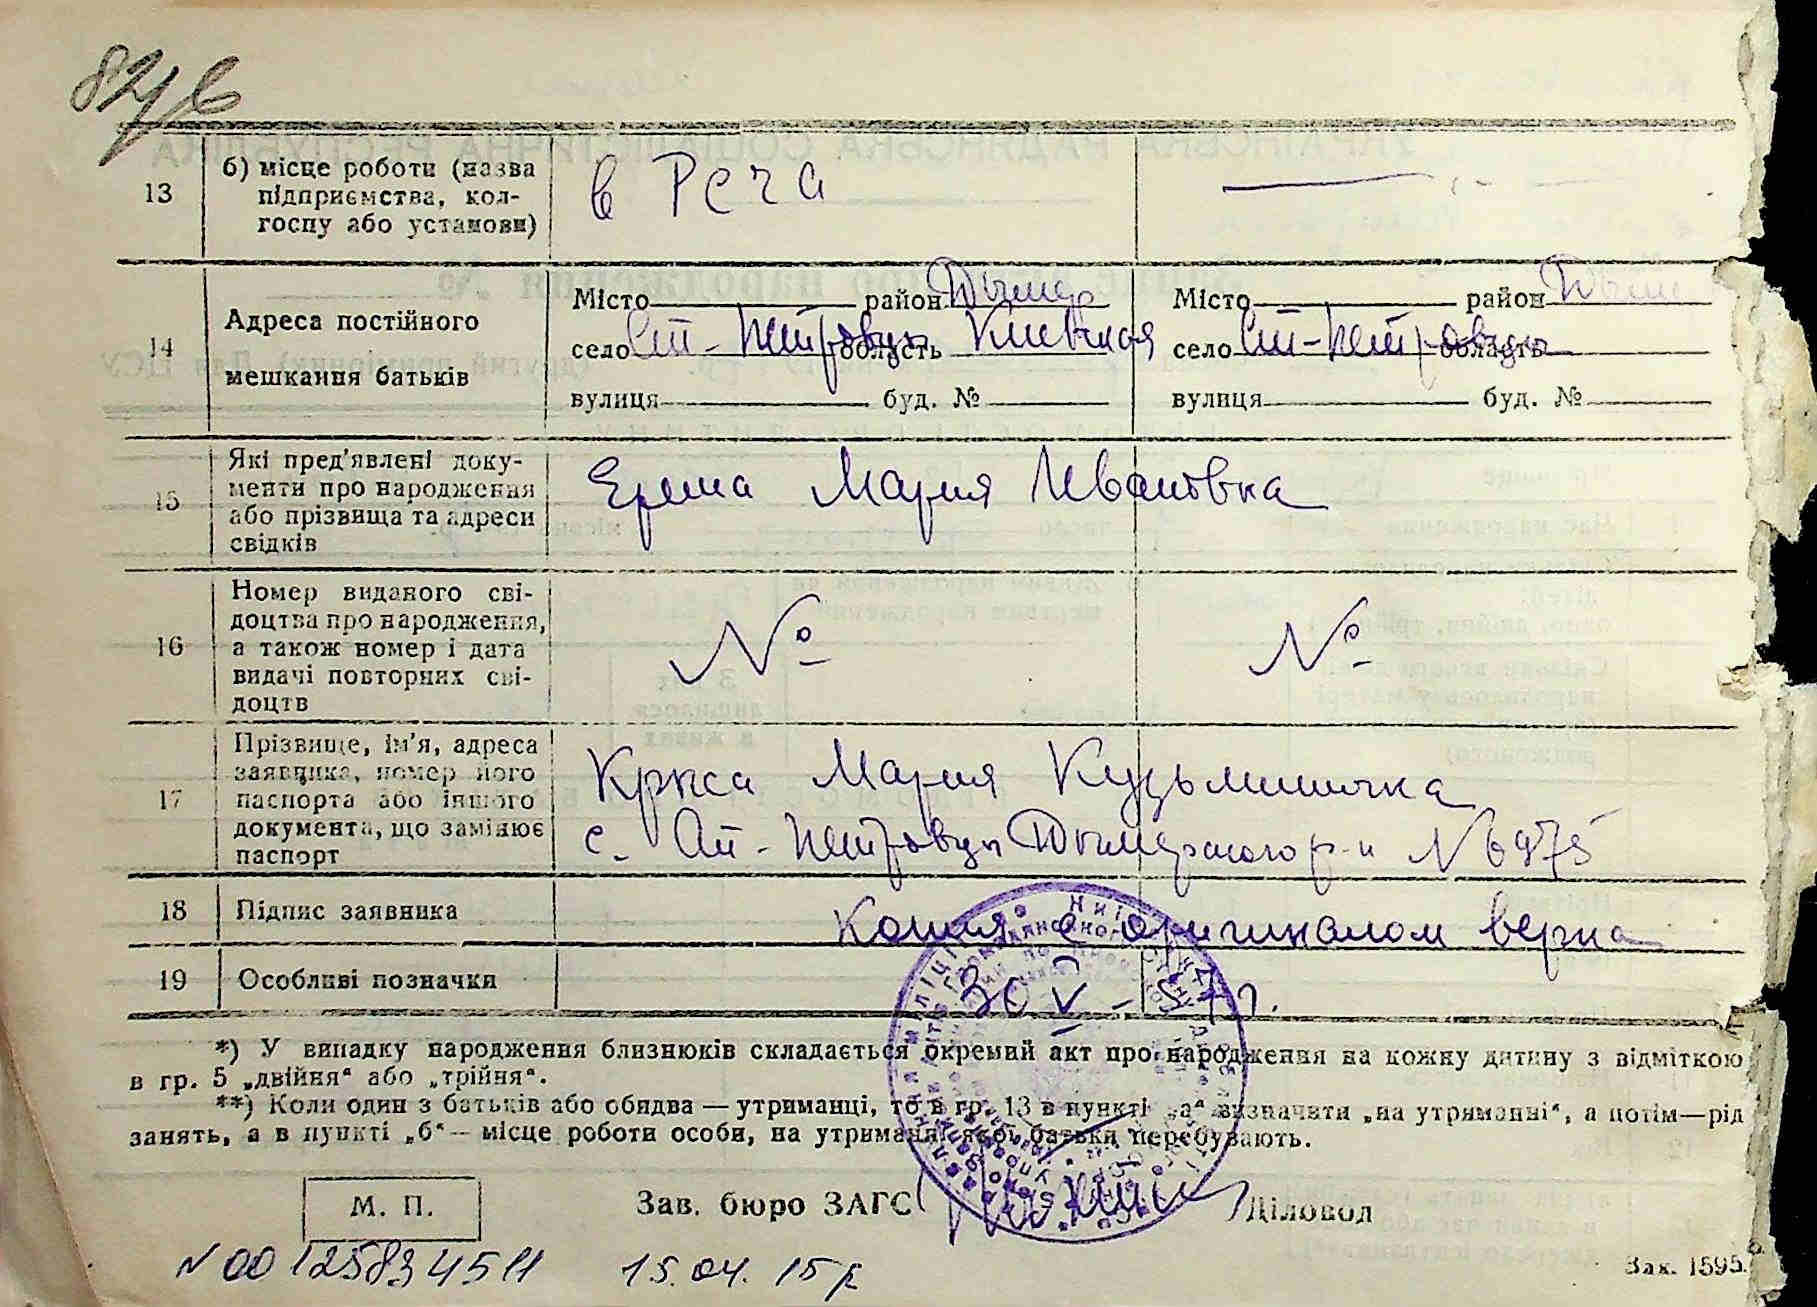 82/в
13 б) місце роботи (назва підприємства, кол-
госпу або установи)
в РСЧА
14 Адреса постійного
мешкання батьків
Місто район Дымер
село Ст-Петровцы область Киевская
вулиця буд. №
Місто район Дым
село Ст-Петровцы область
вулиця буд. №
15 Які пред'явлені доку-
менти про народження
або прізвища та адреси
свідків
Ереша Мария Ивановка
16 Номер виданого сві-
доцтва про народження,
а також номер і дата
видачі повторних сві-
доцтв
№ №
17 Прізвище, ім'я, адреса
заявника, номер його
паспорта або іншого
документа, що замінює
паспорт
Мария Кузьминична
с. Ст-Петровцы Дымерского р-н N 6975
18 Підпис заявника
Копия с оригиналом верна
19 Особливі позначки
30 V - 57 г.
*) У випадку народження близнюків складається окремий акт про народження на кожну дитину з відміткою
в гр. 5 „двійня“ або „трійня“.
**) Коли один з батьків або обидва — утриманці, то в гр. 13 в пункті „а“ визначати „на утриманні“, а потім—рід
занять, а в пункті „б“ — місце роботи особи, на утриманні якої батьки перебувають.
М. П. Зав. бюро ЗАГС Діловод
N 00125834511 15.04.15 р
Зах. 1595.